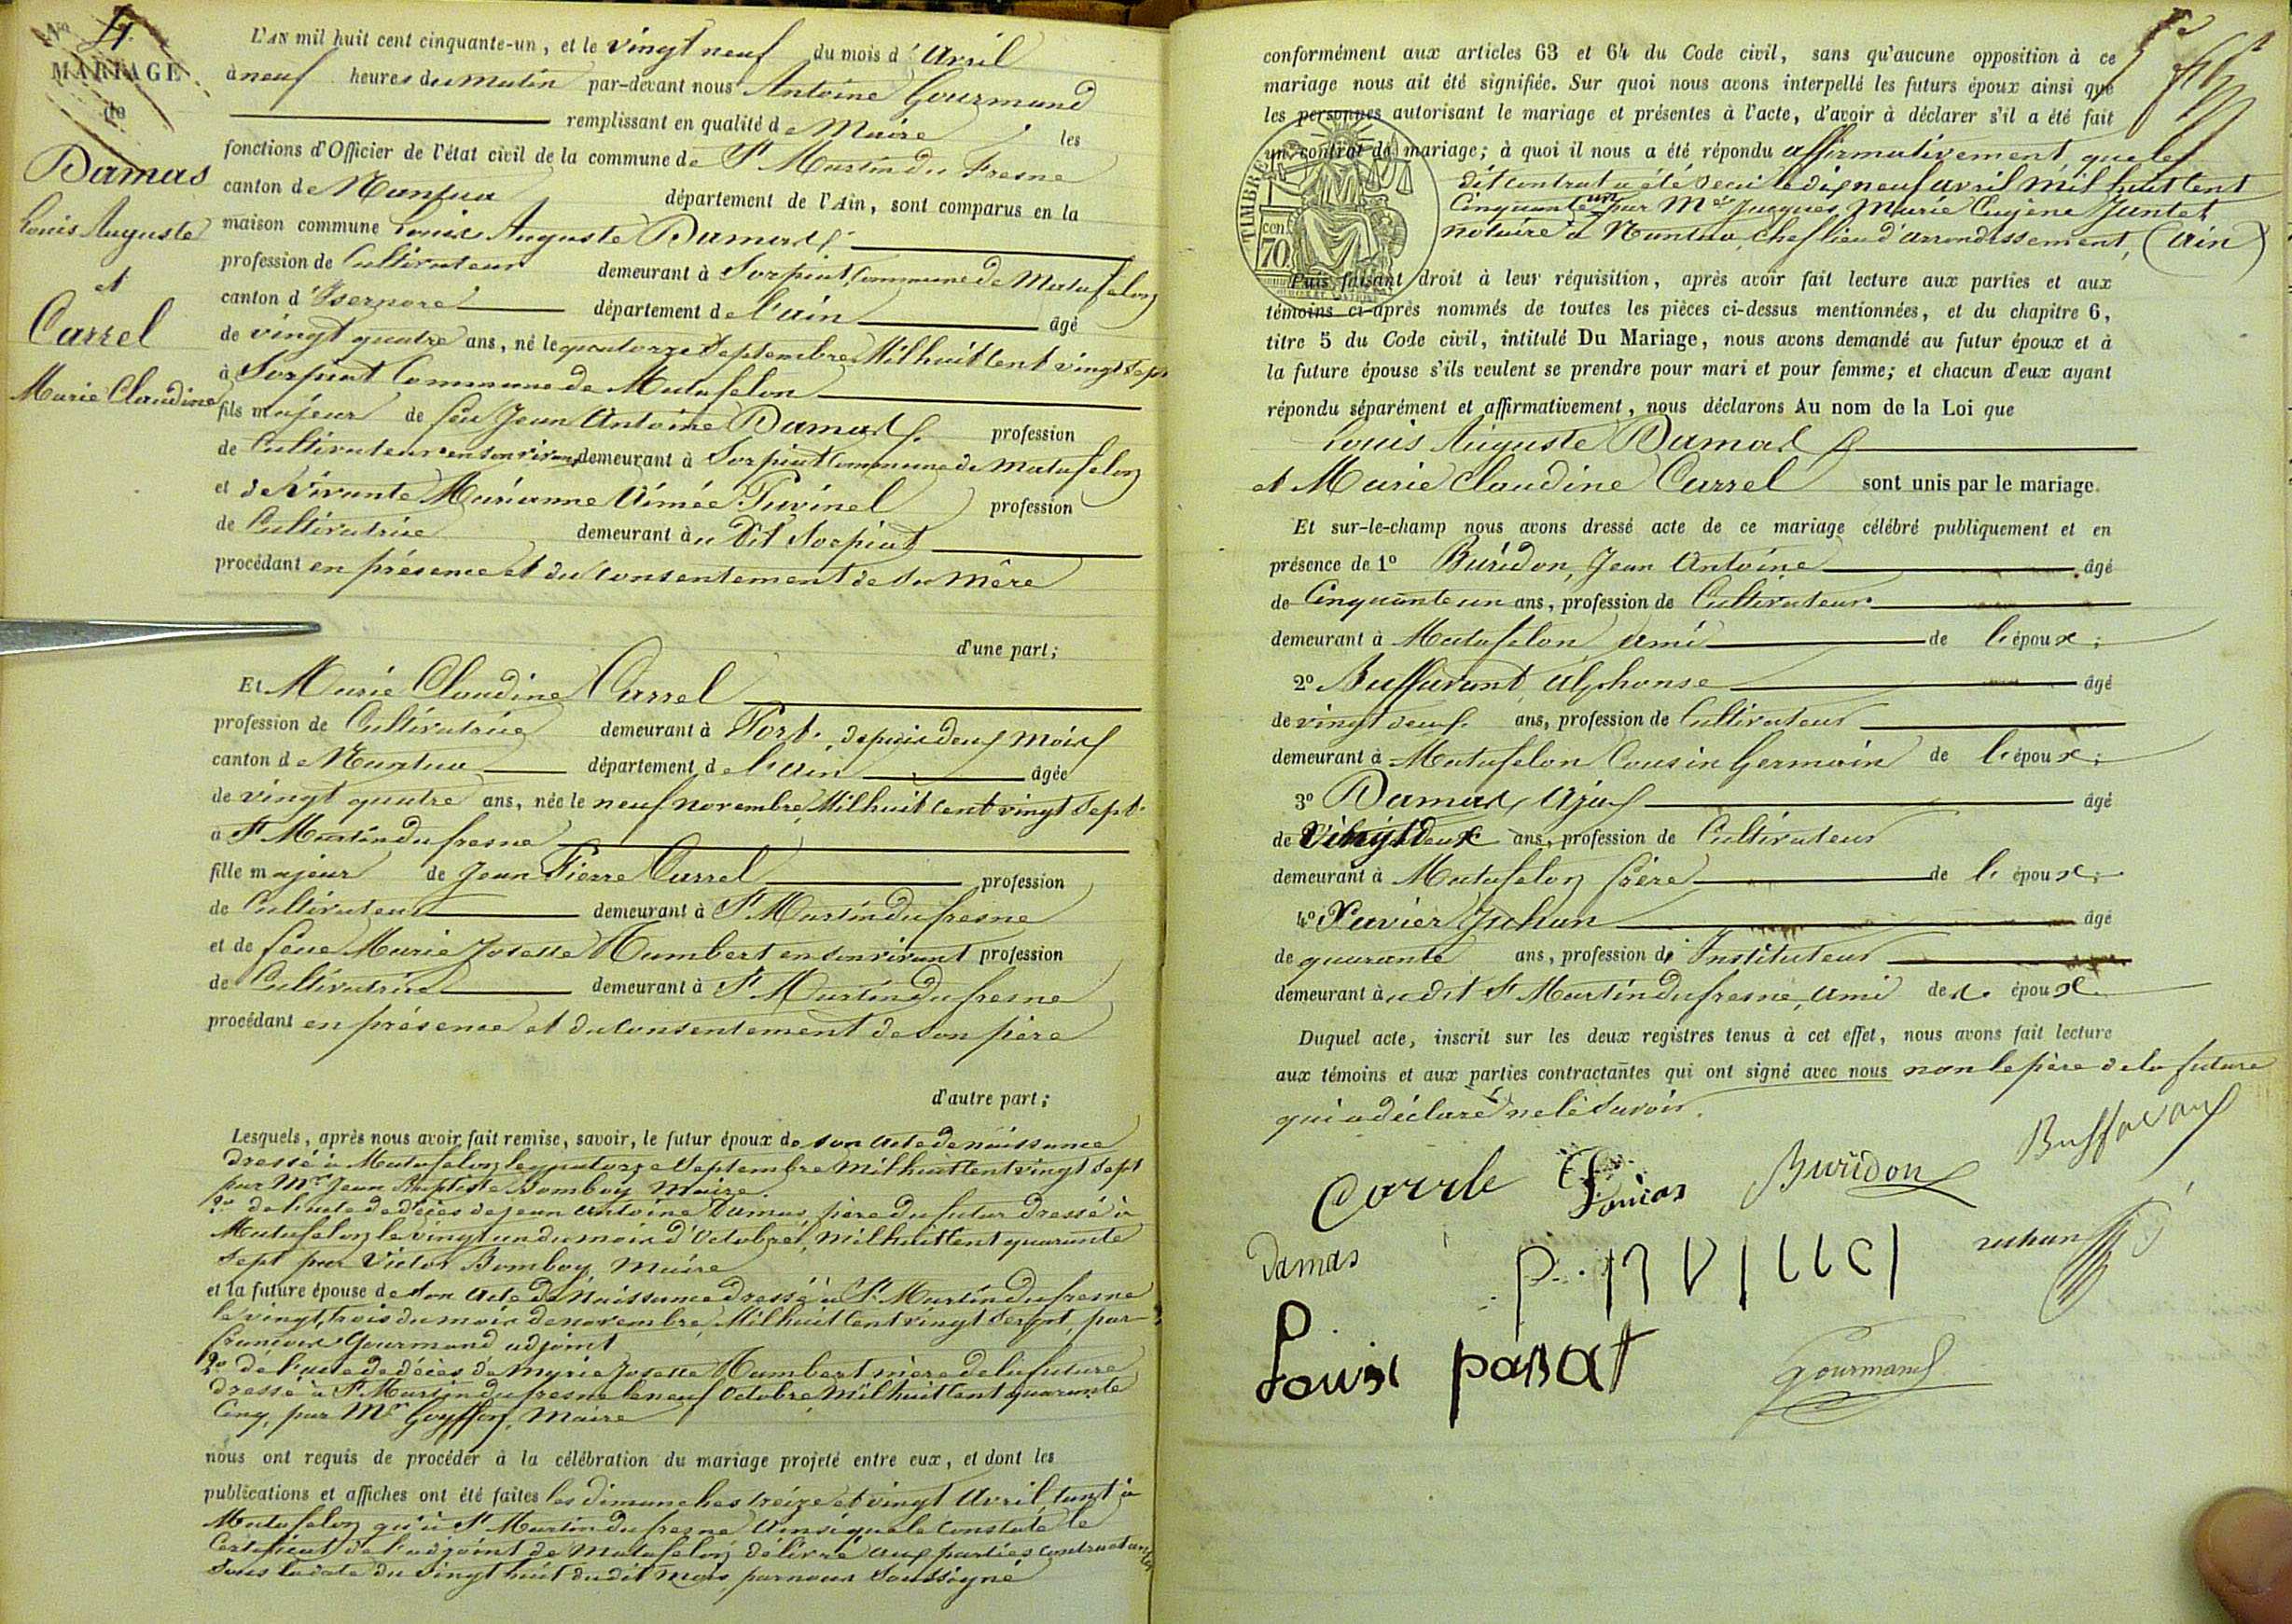 Nº 4.
MARIAGE
de
Damas
Louis Auguste
et
Carrel
Marie Claudine
L'AN mil huit cent cinquante-un, et le vingt neuf du mois d'Avril
à neuf heures du matin par-devant nous Antoine Gourmand
remplissant en qualité de Maire les
fonctions d'Officier de l'état civil de la commune de St Martin du Fresne
canton de Nantua département de l'Ain, sont comparus en la
maison commune Louis Auguste Damas
profession de Cultivateur demeurant à Sorpiat Commune de Matafelon
canton d'Isernore département de l'ain âgé
de vingt quatre ans, né le quatorze Septembre Mil huit Cent vingt Sept
à Sorpiat Commune de Matafelon
fils majeur de feu Jean Antoine Damas profession
de Cultivateur en son vivant demeurant à Sorpiat Commune de Matafelon
et de Vivante Marianne Aimée Puvinel profession
de Cultivatrice demeurant au Dit Sorpiat
procédant en présence et du Consentement de Sa Mère
d'une part;
Et Marie Claudine Carrel
profession de Cultivatrice demeurant à Port, depuis deux Mois
canton de Nantua département de l'ain âgée
de vingt quatre ans, née le neuf novembre Mil huit Cent vingt Sept
à St Martin du fresne
fille majeur de Jean Pierre Carrel profession
de Cultivateur demeurant à St Martin du fresne
et de feue Marie Josette Humbert en son vivant profession
de Cultivatrice demeurant à St Martin du fresne
procédant en présence et du Consentement de Son père
d'autre part;
Lesquels, après nous avoir fait remise, savoir, le futur époux de son acte de naissance
dressé à Matafelon le quatorze Septembre Mil huit Cent vingt Sept
par Mr Jean Baptiste Bomboy Maire.
2º de l'acte de décès de Jean Antoine Damas, père du futur dressé à
Matafelon le vingt un du mois d'Octobre, Mil huit Cent quarante
Sept par Victor Bomboy Maire
et la future épouse de Son Acte de Naissance dressé à St Martin du fresne
le vingt trois du mois de novembre Mil huit Cent vingt Sept, par
françois Gourmand adjoint
2º de l'acte de décès de Marie Josette Humbert mère de la future
dressé à St Martin du fresne le neuf Octobre Mil huit Cent quarante
Cinq, par Mr Goyffon, Maire
nous ont requis de procéder à la célébration du mariage projeté entre eux, et dont les
publications et affiches ont été faites les dimanches treize et vingt Avril, tant à
Matafelon qu'à St Martin du fresne Ainsi que le Constate le
Certificat de l'adjoint de Matafelon délivré aux parties Contractantes
Sous la date du vingt huit du dit Mois, par nous Soussigné
conformément aux articles 63 et 64 du Code civil, sans qu'aucune opposition à ce
mariage nous ait été signifiée. Sur quoi nous avons interpellé les futurs époux ainsi que
les personnes autorisant le mariage et présentes à l'acte, d'avoir à déclarer s'il a été fait
un contrat de mariage; à quoi il nous a été répondu affirmativement, que le
dit Contrat a été reçu le dix neuf avril Mil huit Cent
Cinquante un par Me Jacques Marie Eugène Jantet
notaire à Nantua, Chef lieu d'arrondissement, (Ain)
TIMBRE
cent
70
Puis faisant droit à leur réquisition, après avoir fait lecture aux parties et aux
témoins ci-après nommés de toutes les pièces ci-dessus mentionnées, et du chapitre 6,
titre 5 du Code civil, intitulé Du Mariage, nous avons demandé au futur époux et à
la future épouse s'ils veulent se prendre pour mari et pour femme; et chacun d'eux ayant
répondu séparément et affirmativement, nous déclarons Au nom de la Loi que
Louis Auguste Damas
et Marie Claudine Carrel sont unis par le mariage.
Et sur-le-champ nous avons dressé acte de ce mariage célébré publiquement et en
présence de 1º Buridon, Jean Antoine âgé
de Cinquante un ans, profession de Cultivateur
demeurant à Matafelon ami de l'époux;
2º Buffavant Alphonse âgé
de vingt neuf ans, profession de Cultivateur
demeurant à Matafelon Cousin Germain de l'époux;
3º Damas, Ajax âgé
de Vingt Deux ans, profession de Cultivateur
demeurant à Matafelon frère de l'époux;
4º Xavier Juhan âgé
de quarante ans, profession de Instituteur
demeurant au dit St Martin du fresne, Ami des époux
Duquel acte, inscrit sur les deux registres tenus à cet effet, nous avons fait lecture
aux témoins et aux parties contractantes qui ont signé avec nous non le père de la future
qui a déclaré ne le Savoir.
Buridon
Buffavant
Damas
Juhan
Gourmand